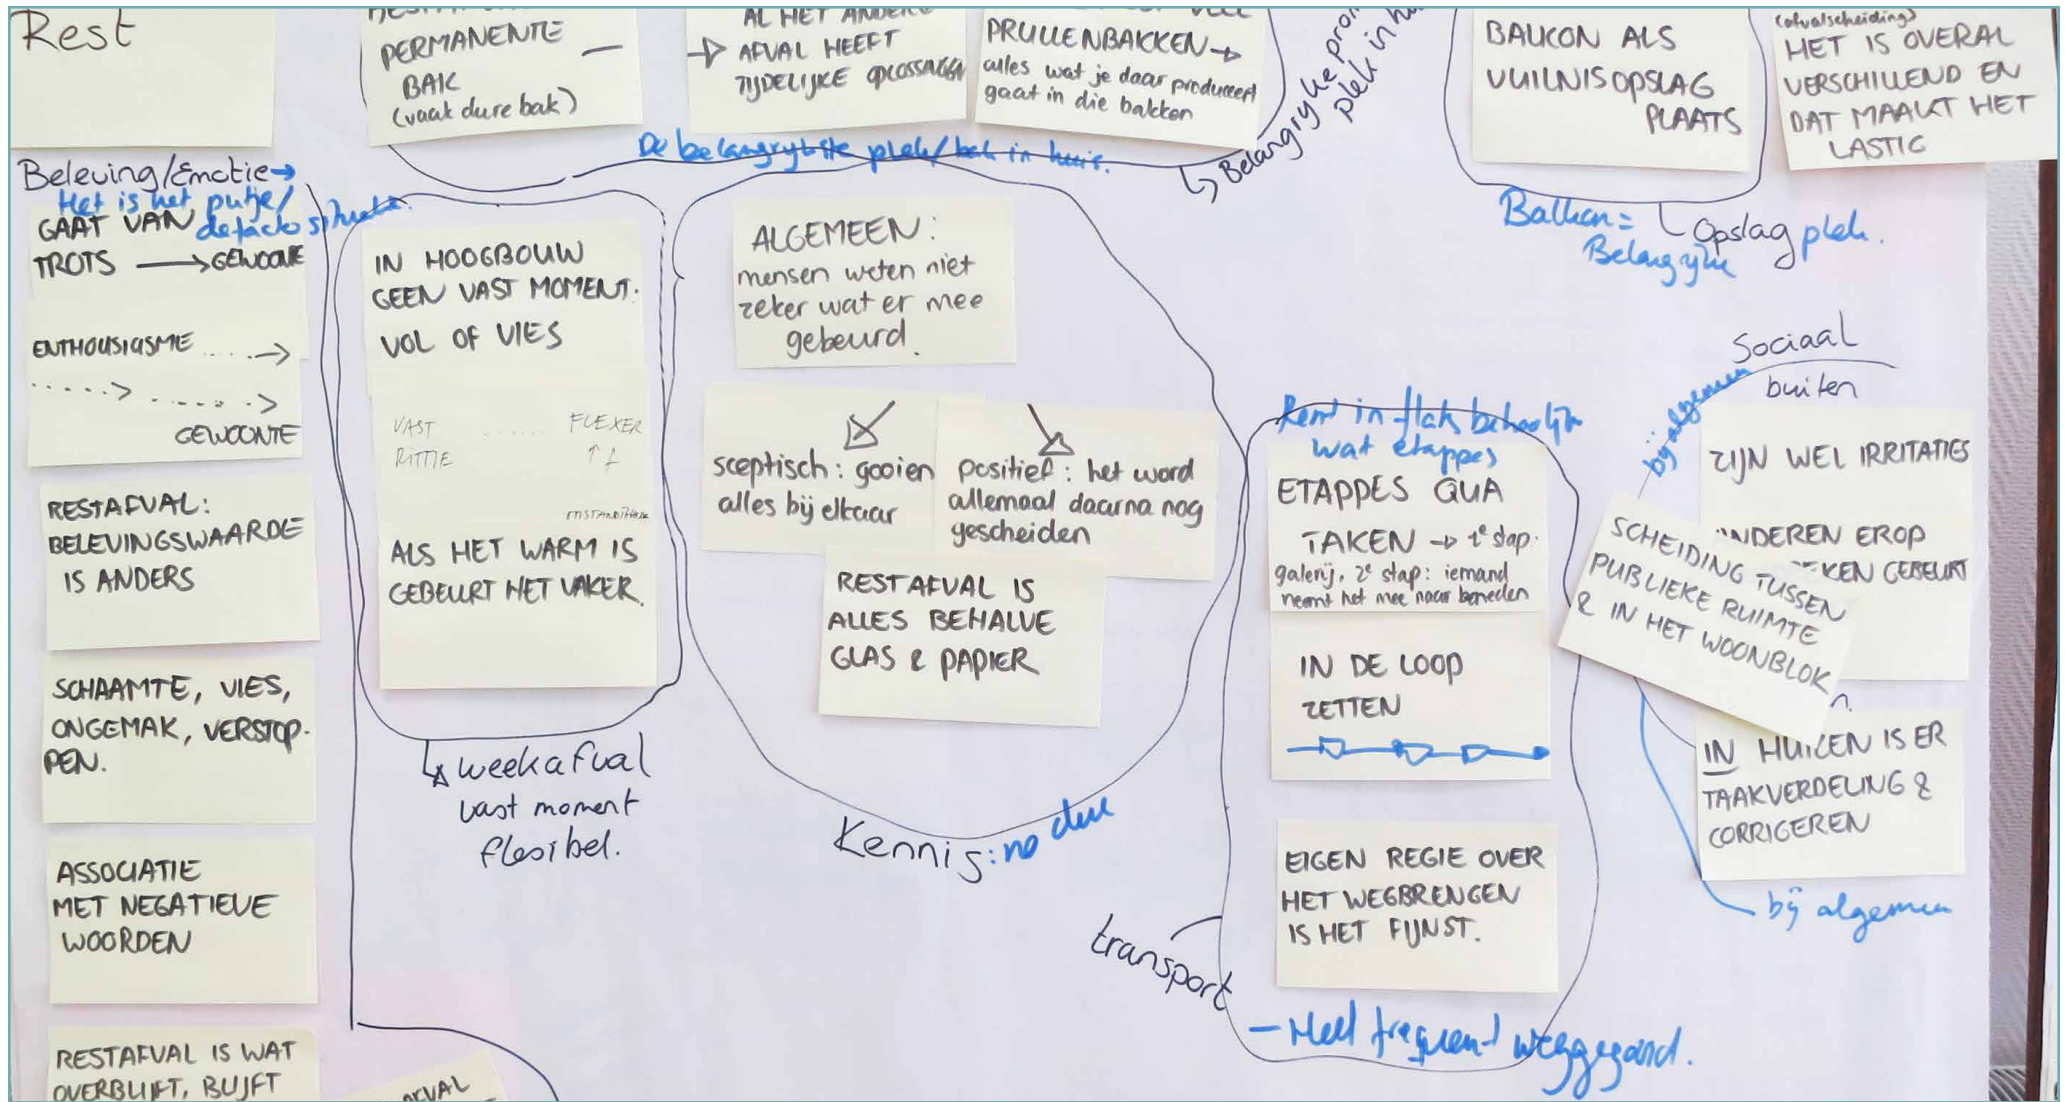 Rest
PERMANENTE
BAK
(vaak dure bak)
AL HET ANDERE
AFVAL HEEFT
TIJDELIJKE OPLOSSINGEN
PRULLENBAKKEN →
alles wat je daar produceert
gaat in die bakken
De belangrijkste plek/bak in huis.
Belangrijke
plek in
BALKON ALS
VUILNISOPSLAG
PLAATS
Balkon =
Belangrijke
Opslag plek.
(afvalscheiding)
HET IS OVERAL
VERSCHILLEND EN
DAT MAAKT HET
LASTIG
Beleving/Emotie →
Het is het putje/
defacto
GAAT VAN
TROTS → GEWOONTE
ENTHOUSIASME ....→
.....> ......>
GEWOONTE
RESTAFVAL:
BELEVINGSWAARDE
IS ANDERS
SCHAAMTE, VIES,
ONGEMAK, VERSTOP-
PEN.
ASSOCIATIE
MET NEGATIEVE
WOORDEN
RESTAFVAL IS WAT
OVERBLIJFT, BLIJFT
IN HOOGBOUW
GEEN VAST MOMENT.
VOL OF VIES
VAST ...... FLEXER
RITTIE ↑ f
ALS HET WARM IS
GEBEURT HET VAKER.
weekafval
vast moment
flexibel.
ALGEMEEN:
mensen weten niet
zeker wat er mee
gebeurd.
sceptisch: gooien
alles bij elkaar
positief: het word
allemaal daarna nog
gescheiden
RESTAFVAL IS
ALLES BEHALVE
GLAS & PAPIER
Kennis: no
in flats behoorlijk
wat etappes
ETAPPES QUA
TAKEN → 1e stap:
galerij, 2e stap: iemand
neemt het mee naar beneden
IN DE LOOP
ZETTEN
EIGEN REGIE OVER
HET WEGBRENGEN
IS HET FIJNST.
transport
- Heel frequent weggegooid.
Sociaal
buiten
bij algemeen
ZIJN WEL IRRITATIES
ANDEREN EROP
GEBEURT
SCHEIDING TUSSEN
PUBLIEKE RUIMTE
& IN HET WOONBLOK
IN HUIZEN IS ER
TAAKVERDELING &
CORRIGEREN
bij algemeen